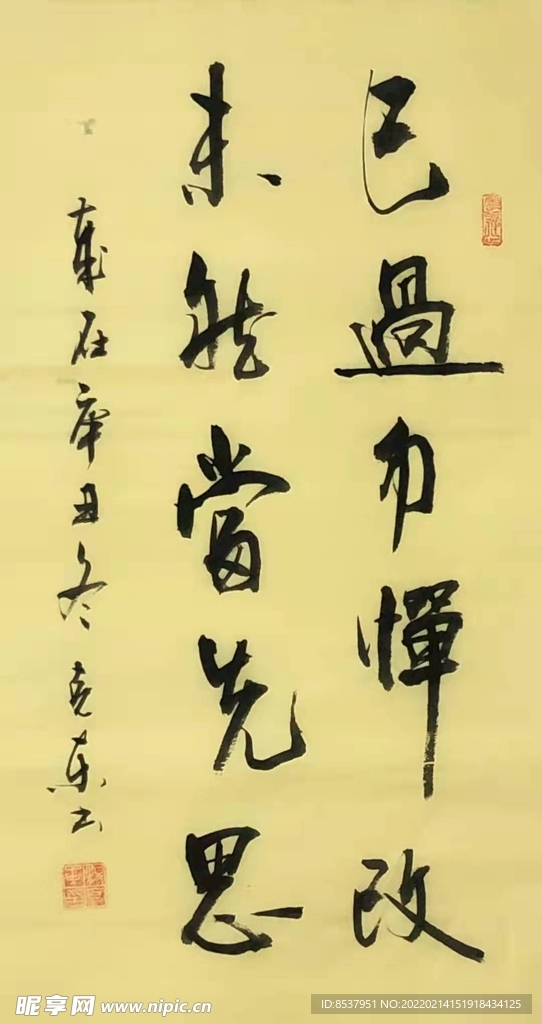 已過勿憚改
未然當先思
歲在辛丑冬 克東书
昵享网 www.nipic.cn
ID:8537951 NO:20220214151918434125